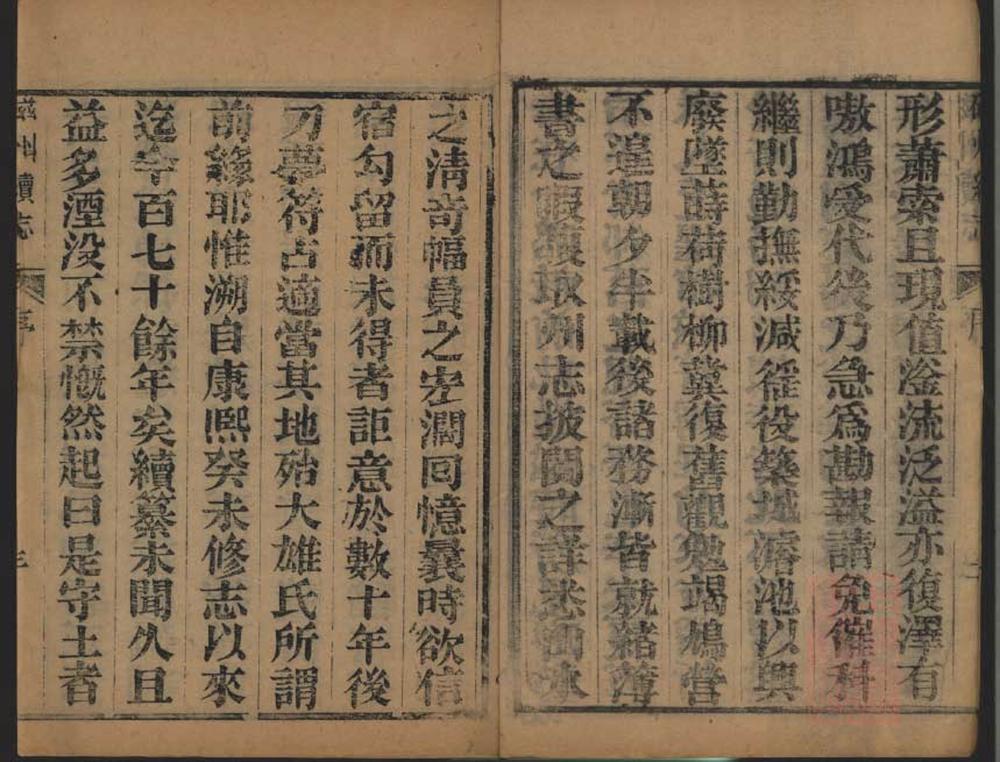 形蕭索且現值滏流泛溢亦復澤有
嗷鴻受代後乃急為勘報請免催科
繼則勤撫綏減徭役築城濬池以興
廢墜蒔荷樹柳冀復舊觀勉竭鳩營
不遑朝夕半載後諸務漸皆就緒薄
書之暇獲取州志披閱之詳悉衝
之淸奇幅員之空濶回憶曩時欲信
宿勾留而未得者詎意於數十年後
刀夢符占適當其地殆大雄氏所謂
前緣耶惟溯自康熙癸未修志以來
迄今百七十餘年矣續纂未聞久且
益多湮没不禁慨然起曰是守土者
磁州續志 序 三